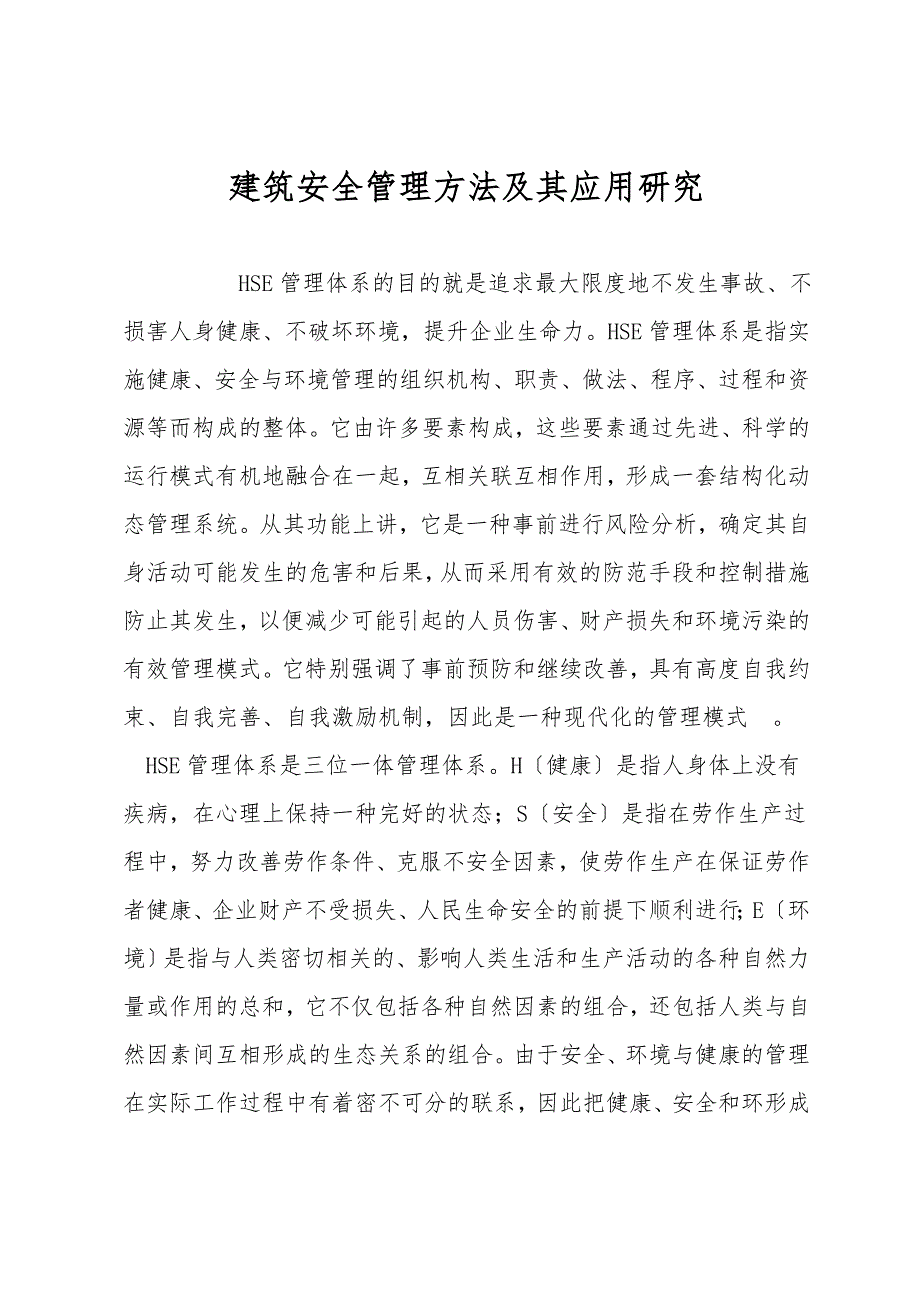 建筑安全管理方法及其应用研究
HSE 管理体系的目的就是追求最大限度地不发生事故、不
损害人身健康、不破坏环境，提升企业生命力。HSE 管理体系是指实
施健康、安全与环境管理的组织机构、职责、做法、程序、过程和资
源等而构成的整体。它由许多要素构成，这些要素通过先进、科学的
运行模式有机地融合在一起，互相关联互相作用，形成一套结构化动
态管理系统。从其功能上讲，它是一种事前进行风险分析，确定其自
身活动可能发生的危害和后果，从而采用有效的防范手段和控制措施
防止其发生，以便减少可能引起的人员伤害、财产损失和环境污染的
有效管理模式。它特别强调了事前预防和继续改善，具有高度自我约
束、自我完善、自我激励机制，因此是一种现代化的管理模式　。
HSE 管理体系是三位一体管理体系。H〔健康〕是指人身体上没有
疾病，在心理上保持一种完好的状态；S〔安全〕是指在劳作生产过
程中，努力改善劳作条件、克服不安全因素，使劳作生产在保证劳作
者健康、企业财产不受损失、人民生命安全的前提下顺利进行；E〔环
境〕是指与人类密切相关的、影响人类生活和生产活动的各种自然力
量或作用的总和，它不仅包括各种自然因素的组合，还包括人类与自
然因素间互相形成的生态关系的组合。由于安全、环境与健康的管理
在实际工作过程中有着密不可分的联系，因此把健康、安全和环形成